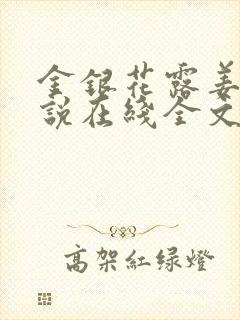 金銀花露姜
說在綫全文
高架紅绿燈